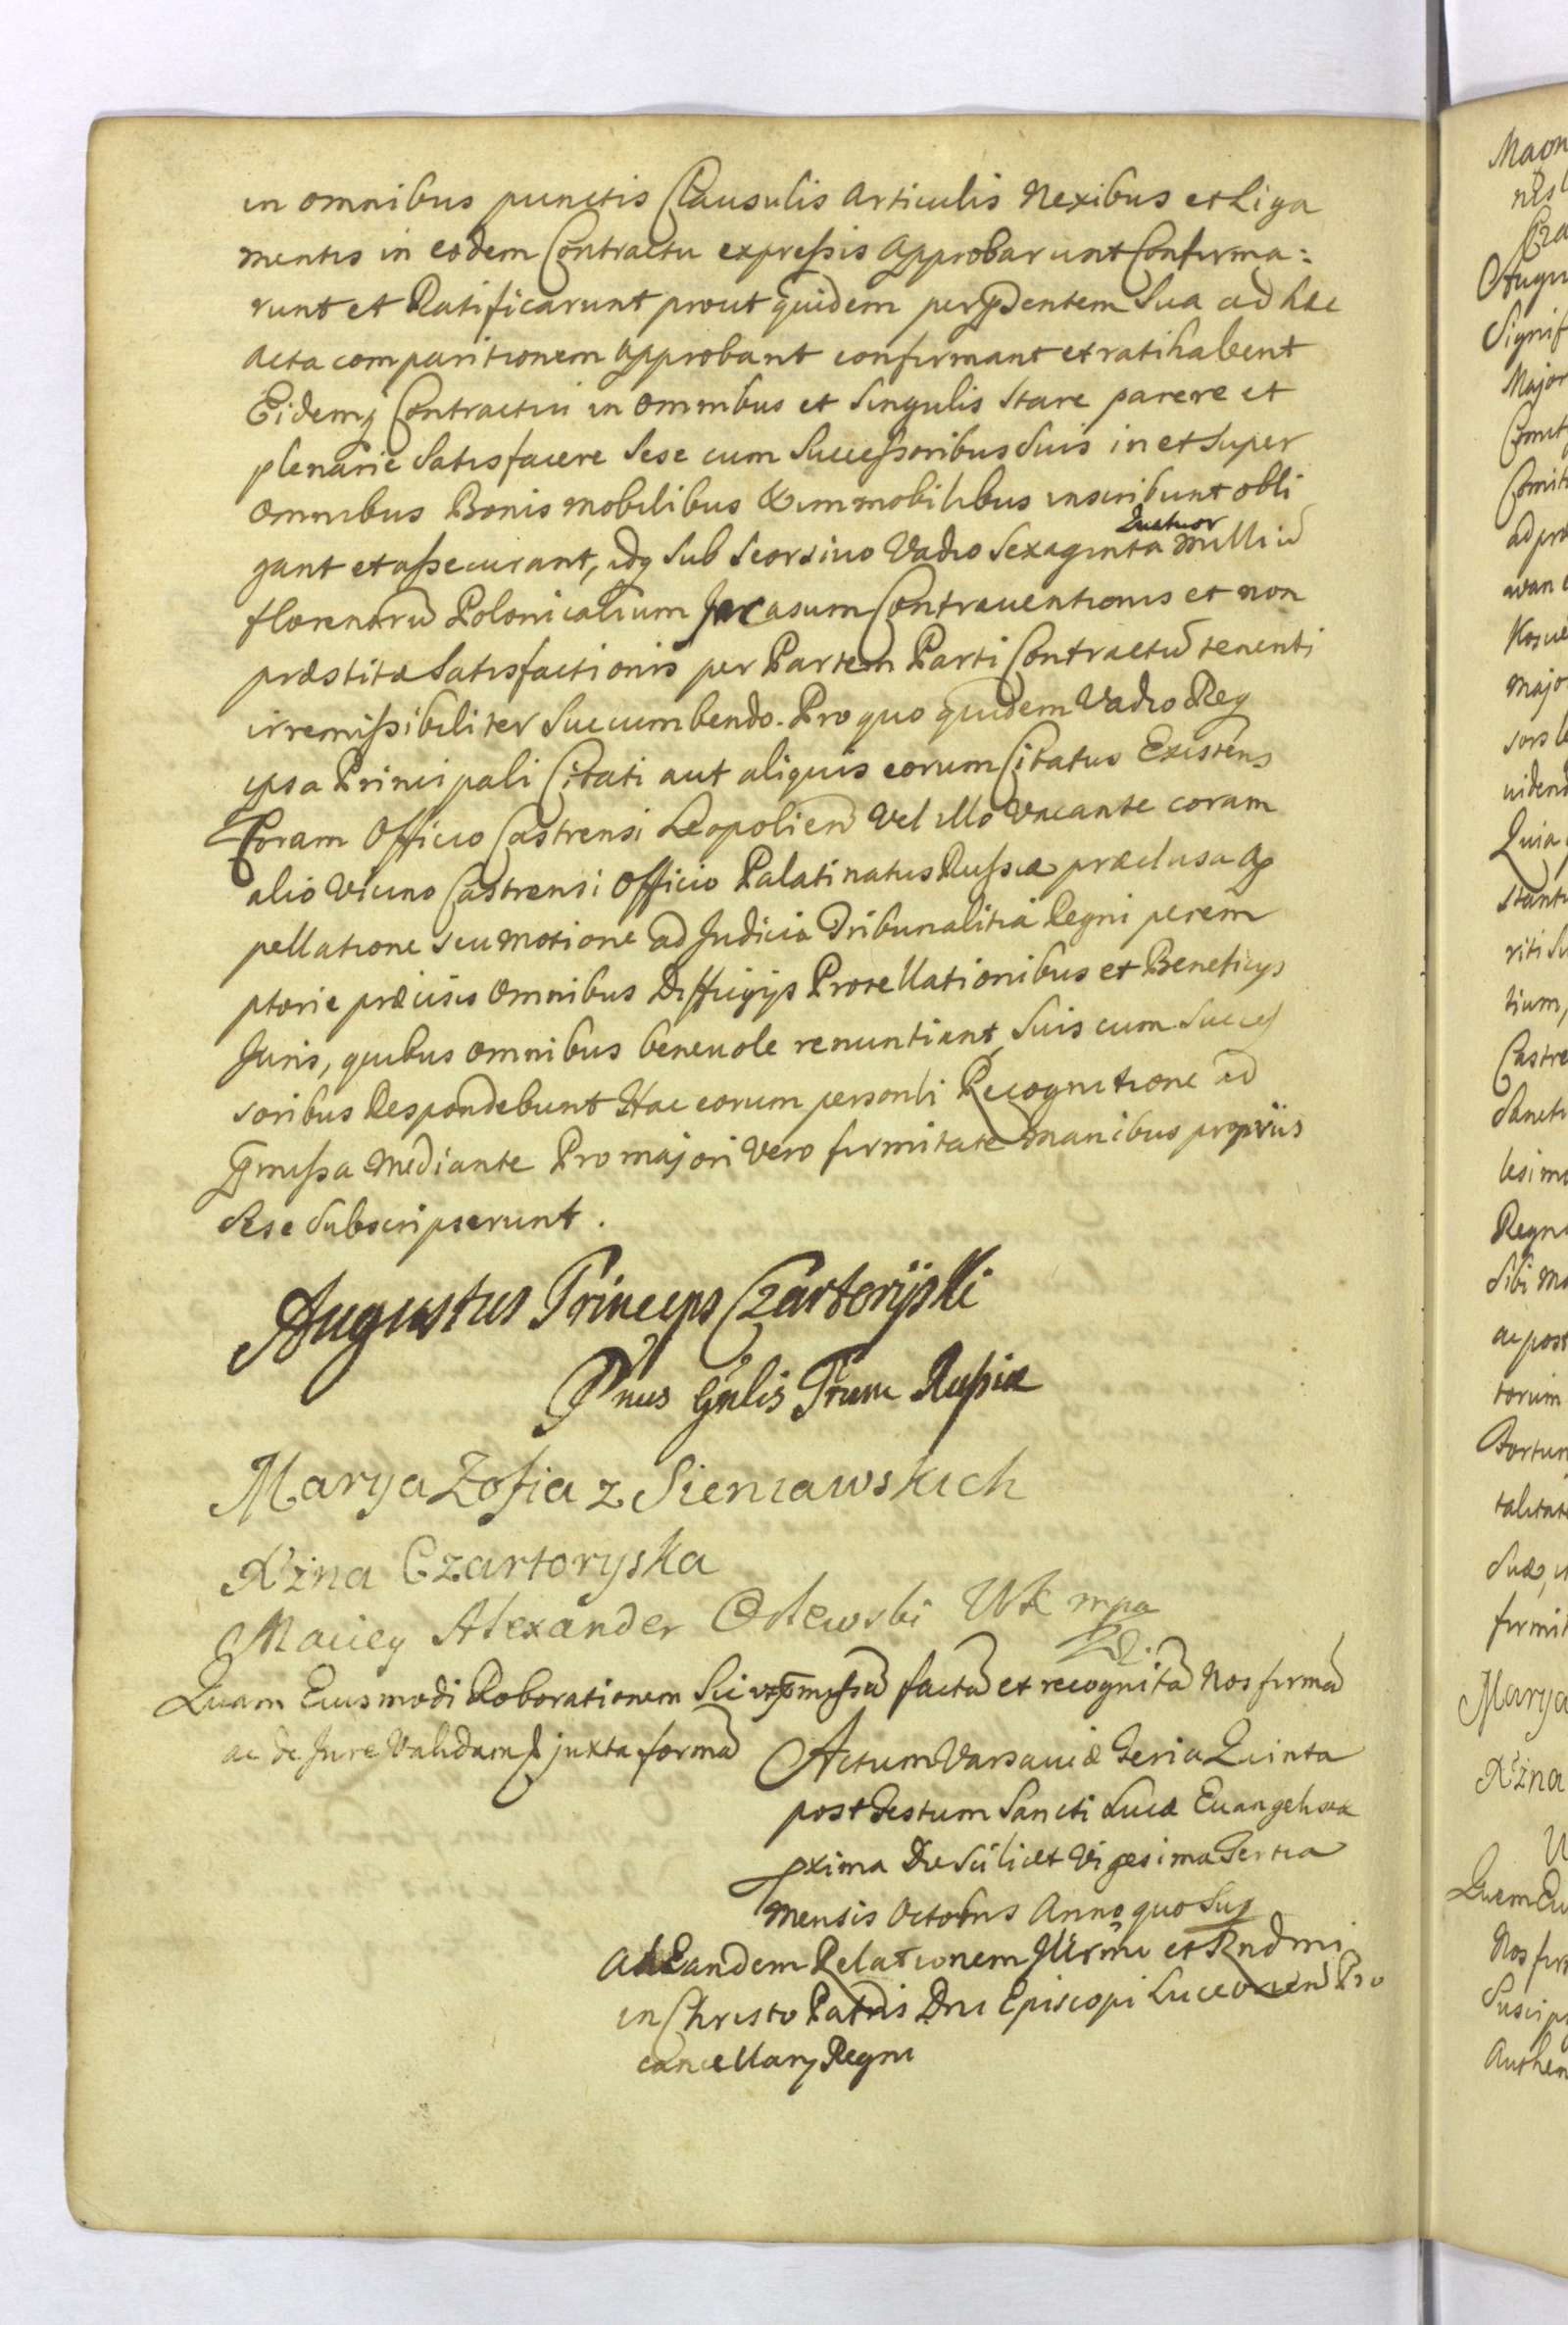 in omnibus punctis Clausulis Articulis Nexibus et Liga
mentis in eodem Contractu expressis Approbarunt Confirma:
runt et Ratificarunt prout quidem per pdentem Sua ad hæc
Acta comparitionem Approbant confirmant et ratihabent
Eidemq Contractui in omnibus et Singulis Stare parere et
plenarie Satisfacere Sese cum Successoribus Suis in et Super
Omnibus Bonis Mobilibus & immobilibus inscribunt obli
gant et assecurant, idq Sub Seorsivo Vadio Sexaginta Quatuor Milliu
florenoru Polonicalium In casum Contraventionis et non
præstitæ Satisfactionis per Partem Parti Contractu tenenti
irremissibiliter Succumbendo. Pro quo quidem Vadio Reg
ipsa Principali Citati aut aliquis eorum Citatus Existens
Coram Officio Castrensi Leopolien Vel illo Vacante coram
alio Vicino Castrensi Officio Palatinatus Russiæ præclusa Ap
pellatione seu motione ad Judicia Tribunalitia Regni perem
ptorie præcisis Omnibus Diffugijs Protellationibus et Beneficijs
Juris, quibus omnibus benevole renuntiant, Suis cum Succes
soribus Respondebunt Hac eorum personli Recognitione ad
pmissa Mediante Pro majori Vero firmitate Manibus proprijs
Sese Subscripserunt.
Augustus Princeps Czartorijski
Pnus Gnlis Trrum Russiæ
Marya Zofia z Sieniawskich
Xżna Czartoryska
Maciey Alexander Orlewski mpa
Quam Eiusmodi Roborationem Sic ut pmissu facta et recognita Nos firma
ac de Jure Validam & juxta forma
Actum Varsaviæ Feria Quinta
post Festum Sancti Lucæ Euangelistæ
pxima Die Scilicet Vigesima Tertia
Mensis Octobris Anno quo Sup
Ad Eandem Relationem Illrmi et Rndmi
in Christo Patris Dni Episcopi Luceorien Pro
cancellarij Regni